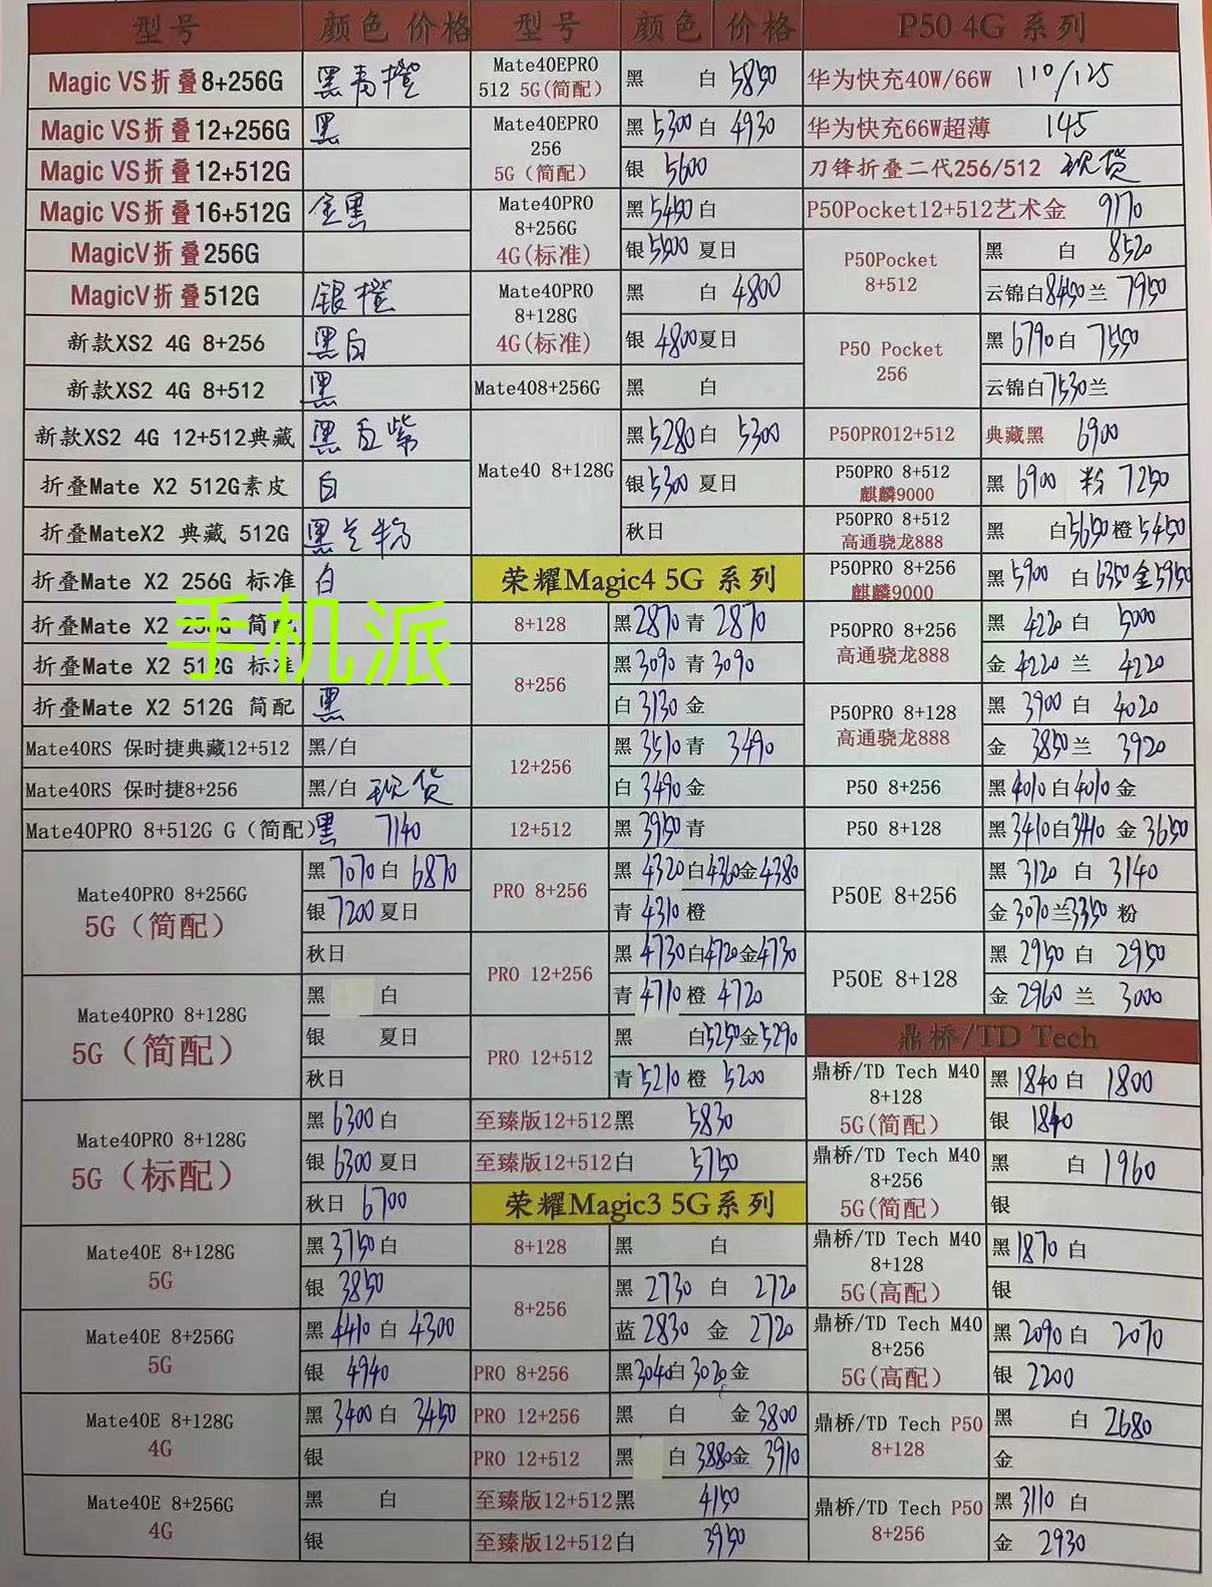 型号 颜色 价格 型号 颜色 价格 P50 4G 系列
Magic VS折叠8+256G 黑青橙
Magic VS折叠12+256G 黑
Magic VS折叠12+512G
Magic VS折叠16+512G 金黑
MagicV折叠256G
MagicV折叠512G 银橙
新款XS2 4G 8+256 黑白
新款XS2 4G 8+512 黑
新款XS2 4G 12+512典藏 黑白紫
折叠Mate X2 512G素皮 白
折叠MateX2 典藏 512G 黑兰粉
折叠Mate X2 256G 标准 白
折叠Mate X2 256G 简配
折叠Mate X2 512G 标准
折叠Mate X2 512G 简配 黑
手机派
Mate40RS 保时捷典藏12+512 黑/白
Mate40RS 保时捷8+256 黑/白 现货
Mate40PRO 8+512G G（简配）黑 7140
Mate40PRO 8+256G
5G（简配）
黑 7070 白 6870
银 7200 夏日
秋日
Mate40PRO 8+128G
5G（简配）
黑 白
银 夏日
秋日
Mate40PRO 8+128G
5G（标配）
黑 6300 白
银 6300 夏日
秋日 6700
Mate40E 8+128G
5G
黑 3750 白
银 3850
Mate40E 8+256G
5G
黑 4410 白 4300
银 4940
Mate40E 8+128G
4G
黑 3400 白 3450
银
Mate40E 8+256G
4G
黑 白
银
Mate40EPRO
512 5G(简配)
黑 白 5850
Mate40EPRO
256
5G（简配）
黑 5300 白 4930
银 5600
Mate40PRO
8+256G
4G(标准)
黑 5450 白
银 5500 夏日
Mate40PRO
8+128G
4G(标准)
黑 白 4800
银 4800 夏日
Mate408+256G 黑 白
Mate40 8+128G
黑 5280 白 5300
银 5300 夏日
秋日
荣耀Magic4 5G 系列
8+128 黑 2870 青 2870
8+256
黑 3090 青 3090
白 3130 金
12+256
黑 3510 青 3490
白 3490 金
12+512 黑 3950 青
PRO 8+256
黑 4320 白 4360 金 4380
青 4310 橙
PRO 12+256
黑 4730 白 4720 金 4730
青 4710 橙 4720
PRO 12+512
黑 白 5250 金 5290
青 5210 橙 5200
至臻版12+512黑 5830
至臻版12+512白 5750
荣耀Magic3 5G系列
8+128 黑 白
8+256
黑 2730 白 2720
蓝 2830 金 2720
PRO 8+256 黑 3040 白 3020 金
PRO 12+256 黑 白 金 3800
PRO 12+512 黑 白 3880 金 3910
至臻版12+512黑 4150
至臻版12+512白 3950
华为快充40W/66W 110/125
华为快充66W超薄 145
刀锋折叠二代256/512 现货
P50Pocket12+512艺术金 9170
P50Pocket
8+512
黑 白 8520
云锦白 8450 兰 7950
P50 Pocket
256
黑 6790 白 7550
云锦白 7530 兰
P50PRO12+512 典藏黑 6900
P50PRO 8+512
麒麟9000
黑 6900 粉 7250
P50PRO 8+512
高通骁龙888
黑 白 5650 橙 5450
P50PRO 8+256
麒麟9000
黑 5900 白 6350 金 5950
P50PRO 8+256
高通骁龙888
黑 4220 白 5000
金 4220 兰 4220
P50PRO 8+128
高通骁龙888
黑 3900 白 4020
金 3850 兰 3920
P50 8+256 黑 4010 白 4010 金
P50 8+128 黑 3410 白 3410 金 3650
P50E 8+256
黑 3120 白 3140
金 3070 兰 3350 粉
P50E 8+128
黑 2950 白 2950
金 2960 兰 3000
鼎桥/TD Tech
鼎桥/TD Tech M40
8+128
5G(简配)
黑 1840 白 1800
银 1840
鼎桥/TD Tech M40
8+256
5G(简配)
黑 白 1960
银
鼎桥/TD Tech M40
8+128
5G(高配)
黑 1870 白
银
鼎桥/TD Tech M40
8+256
5G(高配)
黑 2090 白 2070
银 2200
鼎桥/TD Tech P50
8+128
黑 白 2680
金
鼎桥/TD Tech P50
8+256
黑 3110 白
金 2930